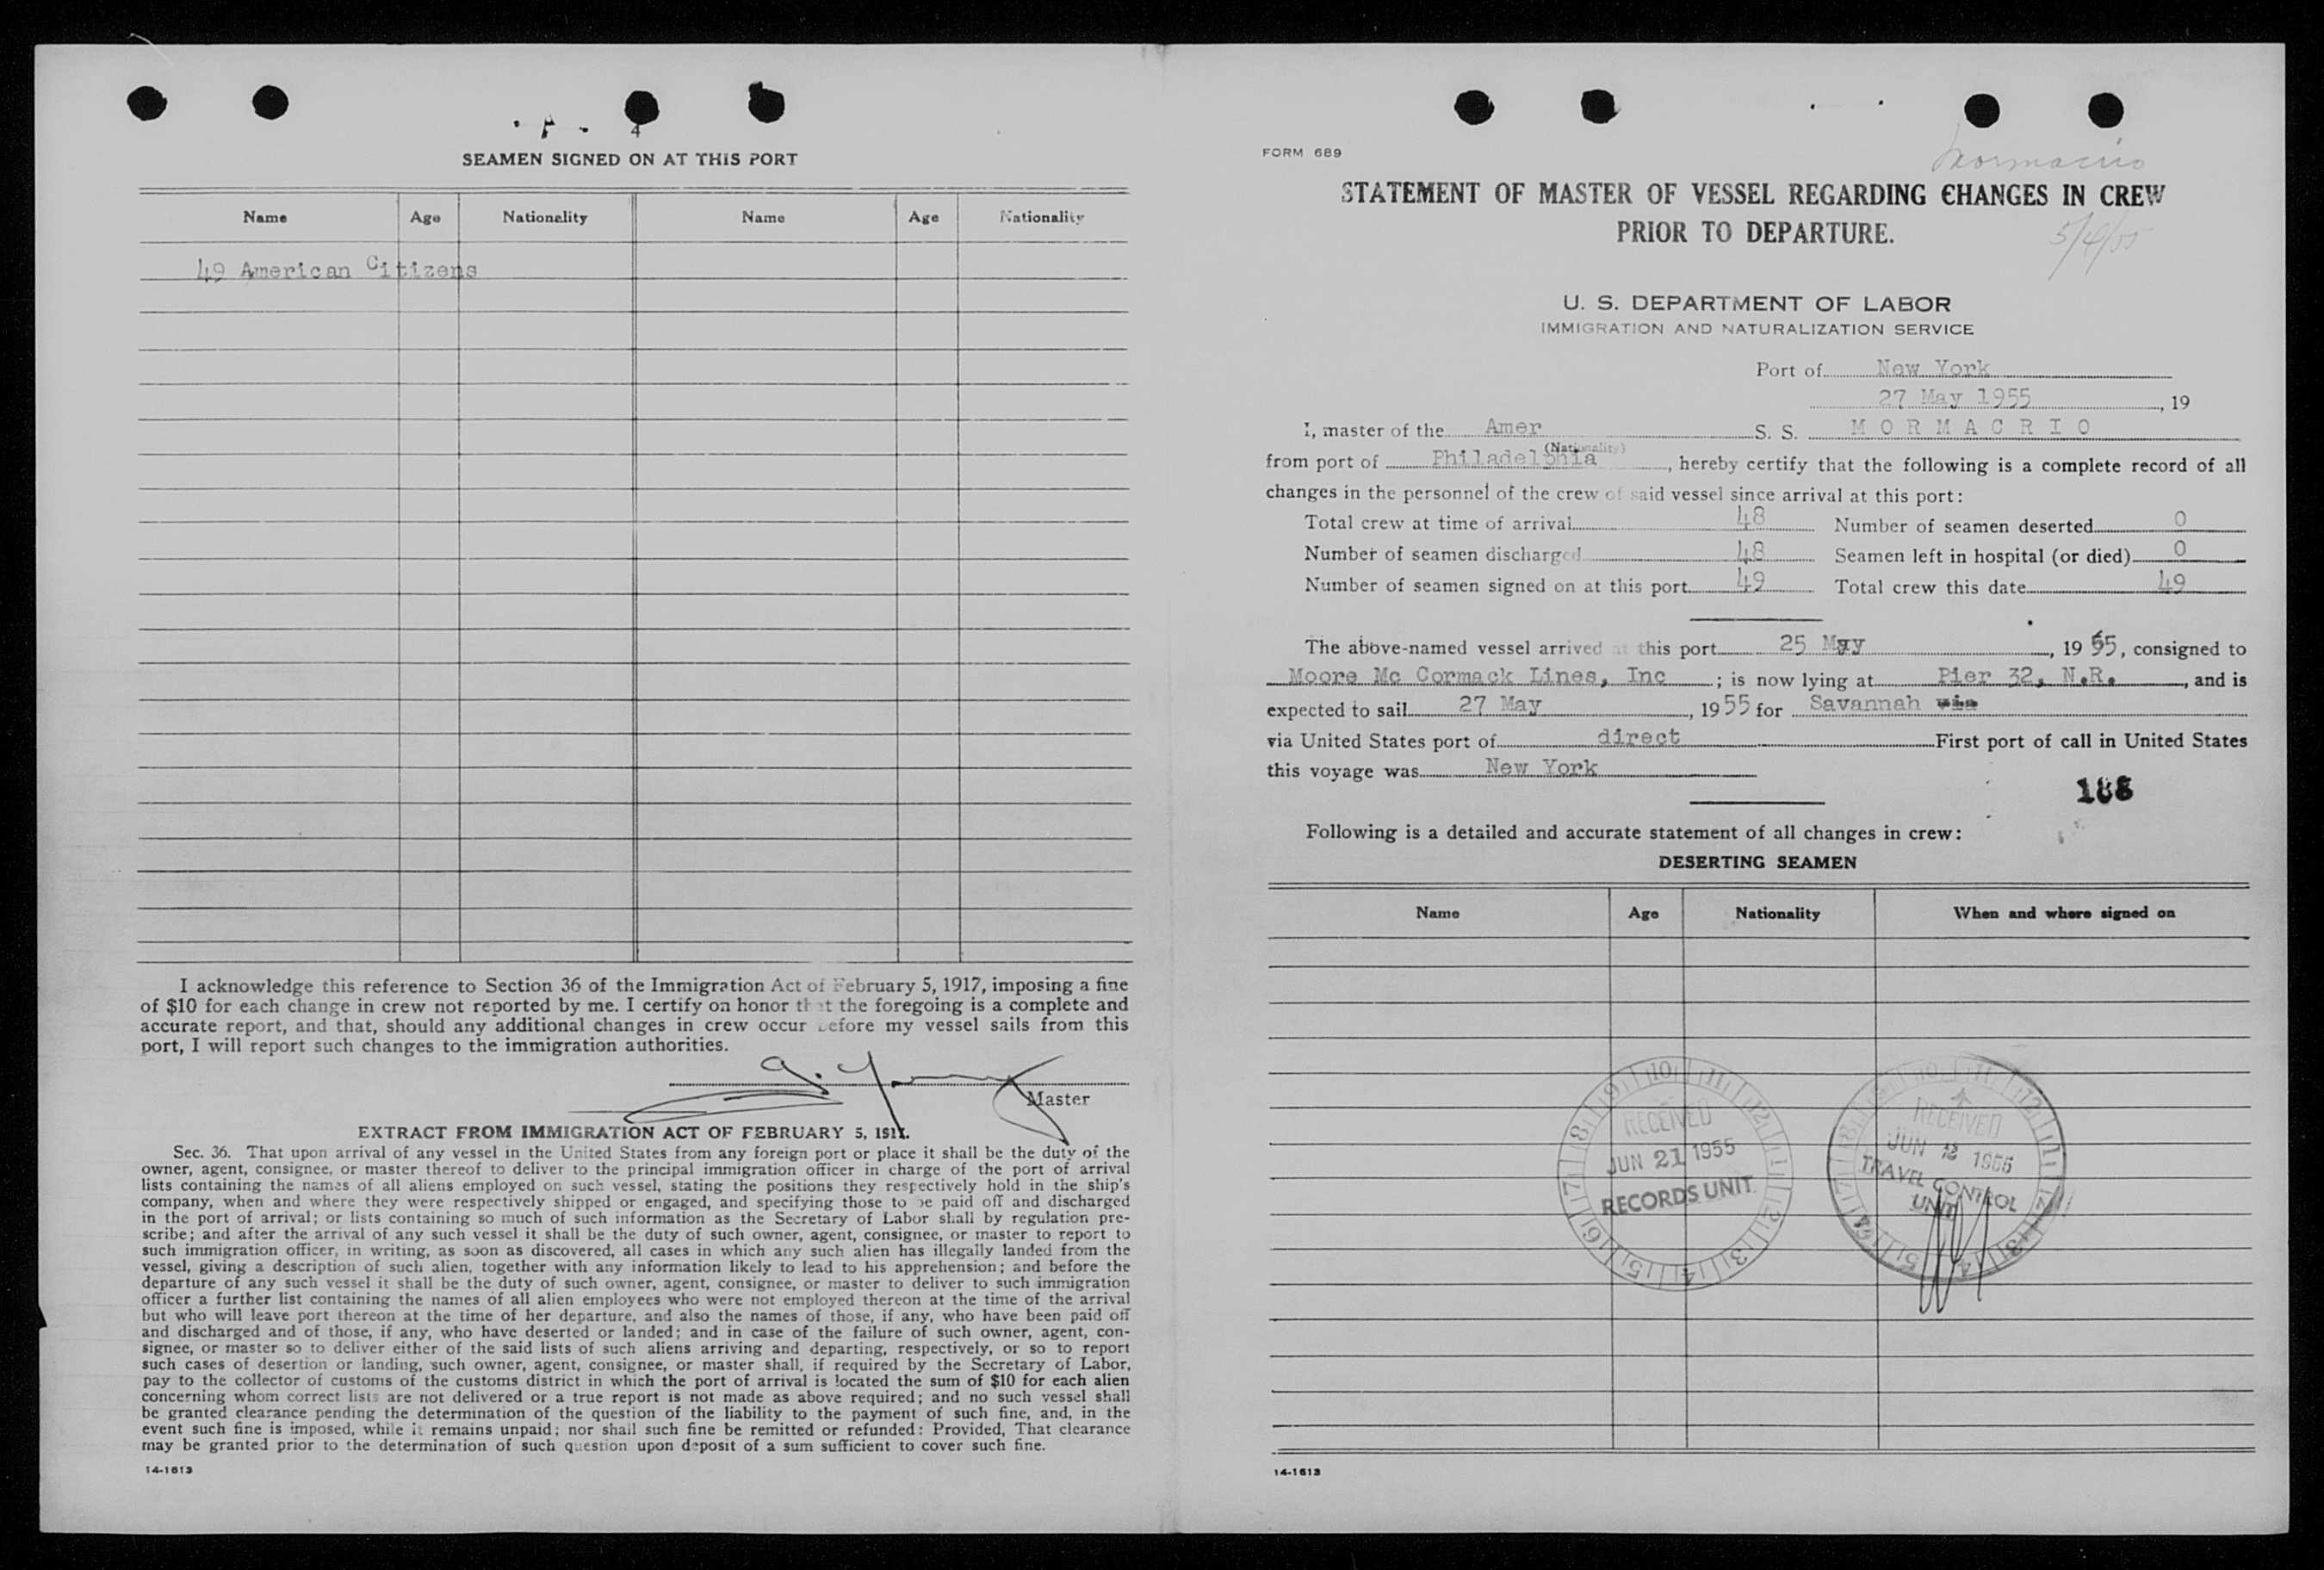 4
SEAMEN SIGNED ON AT THIS PORT
Name Age Nationality Name Age Nationality
49 American Citizens
I acknowledge this reference to Section 36 of the Immigration Act of February 5, 1917, imposing a fine
of $10 for each change in crew not reported by me. I certify on honor that the foregoing is a complete and
accurate report, and that, should any additional changes in crew occur before my vessel sails from this
port, I will report such changes to the immigration authorities.
Master
EXTRACT FROM IMMIGRATION ACT OF FEBRUARY 5, 1917.
Sec. 36. That upon arrival of any vessel in the United States from any foreign port or place it shall be the duty of the
owner, agent, consignee, or master thereof to deliver to the principal immigration officer in charge of the port of arrival
lists containing the names of all aliens employed on such vessel, stating the positions they respectively hold in the ship's
company, when and where they were respectively shipped or engaged, and specifying those to be paid off and discharged
in the port of arrival; or lists containing so much of such information as the Secretary of Labor shall by regulation pre-
scribe; and after the arrival of any such vessel it shall be the duty of such owner, agent, consignee, or master to report to
such immigration officer, in writing, as soon as discovered, all cases in which any such alien has illegally landed from the
vessel, giving a description of such alien, together with any information likely to lead to his apprehension; and before the
departure of any such vessel it shall be the duty of such owner, agent, consignee, or master to deliver to such immigration
officer a further list containing the names of all alien employees who were not employed thereon at the time of the arrival
but who will leave port thereon at the time of her departure, and also the names of those, if any, who have been paid off
and discharged and of those, if any, who have deserted or landed; and in case of the failure of such owner, agent, con-
signee, or master so to deliver either of the said lists of such aliens arriving and departing, respectively, or so to report
such cases of desertion or landing, such owner, agent, consignee, or master shall, if required by the Secretary of Labor,
pay to the collector of customs of the customs district in which the port of arrival is located the sum of $10 for each alien
concerning whom correct lists are not delivered or a true report is not made as above required; and no such vessel shall
be granted clearance pending the determination of the question of the liability to the payment of such fine, and, in the
event such fine is imposed, while it remains unpaid; nor shall such fine be remitted or refunded: Provided, That clearance
may be granted prior to the determination of such question upon deposit of a sum sufficient to cover such fine.
14-1613
FORM 689
Mormacrio
STATEMENT OF MASTER OF VESSEL REGARDING CHANGES IN CREW
PRIOR TO DEPARTURE.
U. S. DEPARTMENT OF LABOR
IMMIGRATION AND NATURALIZATION SERVICE
Port of New York
27 May 1955, 19
I, master of the Amer S. S. M O R M A C R I O
(Nationality)
from port of Philadelphia, hereby certify that the following is a complete record of all
changes in the personnel of the crew of said vessel since arrival at this port:
Total crew at time of arrival 48 Number of seamen deserted 0
Number of seamen discharged 48 Seamen left in hospital (or died) 0
Number of seamen signed on at this port 49 Total crew this date 49
The above-named vessel arrived at this port 25 May, 19 55, consigned to
Moore Mc Cormack Lines, Inc; is now lying at Pier 32, N.R., and is
expected to sail 27 May, 19 55 for Savannah via
via United States port of direct First port of call in United States
this voyage was New York
188
Following is a detailed and accurate statement of all changes in crew:
DESERTING SEAMEN
Name Age Nationality When and where signed on
RECEIVED
JUN 21 1955
RECORDS UNIT
RECEIVED
JUN 2 1955
TRAVEL CONTROL
UNIT
14-1613